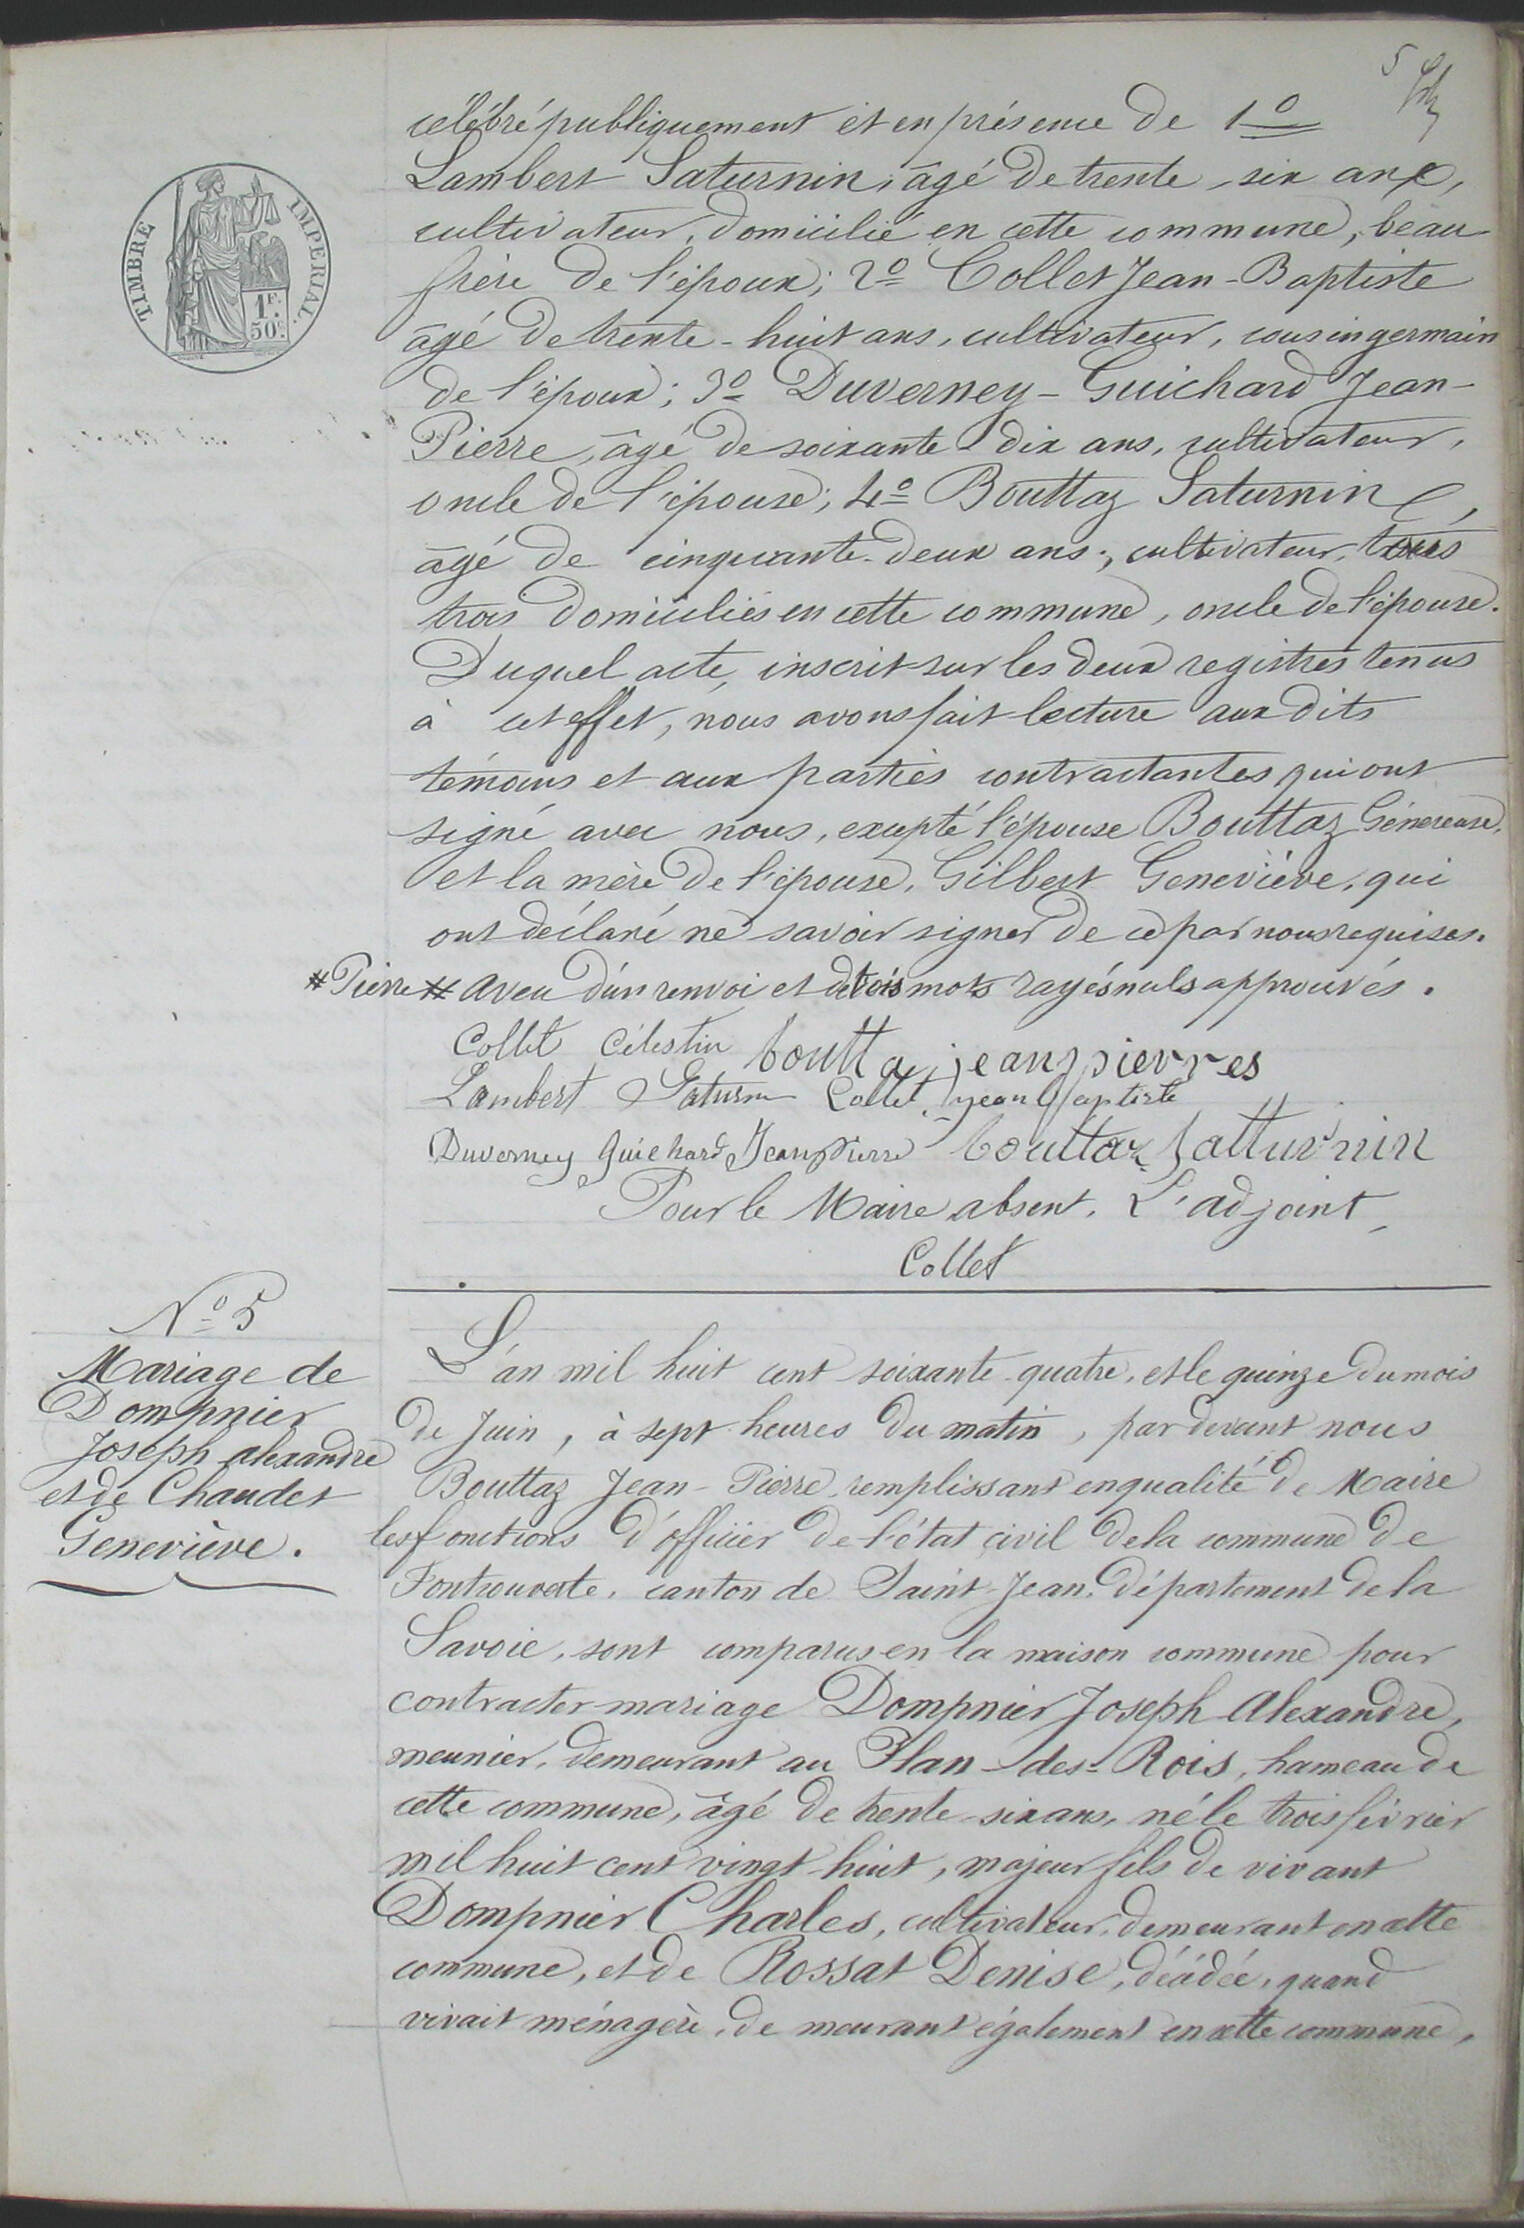 5
célébré publiquement et en présence de 1º
Lambert Saturnin, âgé de trente-six ans,
cultivateur, domicilié en cette commune, beau
frère de l'époux; 2º Collet Jean-Baptiste
âgé de trente-huit ans, cultivateur, cousin germain
de l'époux; 3º Duverney-Guichard Jean-
Pierre, âgé de soixante dix ans, cultivateur,
oncle de l'épouse; 4º Bouttaz Saturnin,
âgé de cinquante-deux ans, cultivateur, tous
trois domiciliés en cette commune, oncle de l'épouse.
Duquel acte, inscrit sur les deux registres tenus
à cet effet, nous avons fait lecture aux dits
témoins et aux parties contractantes qui ont
signé avec nous, excepté l'épouse Bouttaz Généreuse,
et la mère de l'épouse, Gilbert Geneviève, qui
ont déclaré ne savoir signer de ce par nous requises.
#Pierre # aveu d'un renvoi et de trois mots rayés nuls approuvés.
Collet Célestin boutta jeanpierres
Lambert Saturnin Collet jean Baptiste
Duverney Guichard Jean pierre bouttaz satturnin
Pour le Maire absent, L'adjoint,
Collet
TIMBRE IMPERIAL.
1F.
50C.
Nº 5
Mariage de
Dompnier
Joseph alexandre
et de Chaudet
Geneviève.
L'an mil huit cent soixante-quatre, et le quinze du mois
de Juin, à sept heures du matin, par devant nous
Bouttaz Jean-Pierre, remplissant en qualité de Maire
les fonctions d'officier de l'état civil de la commune de
Fontcouverte, canton de Saint-Jean, département de la
Savoie, sont comparus en la maison commune pour
contracter mariage Dompnier Joseph Alexandre,
meunier, demeurant au Plan-des-Rois, hameau de
cette commune, âgé de trente-six ans, né le trois février
mil huit cent vingt-huit, majeur fils de vivant
Dompnier Charles, cultivateur, demeurant en cette
commune, et de Rossat Denise, décédée, quand
vivait ménagère, demeurant également en cette commune,